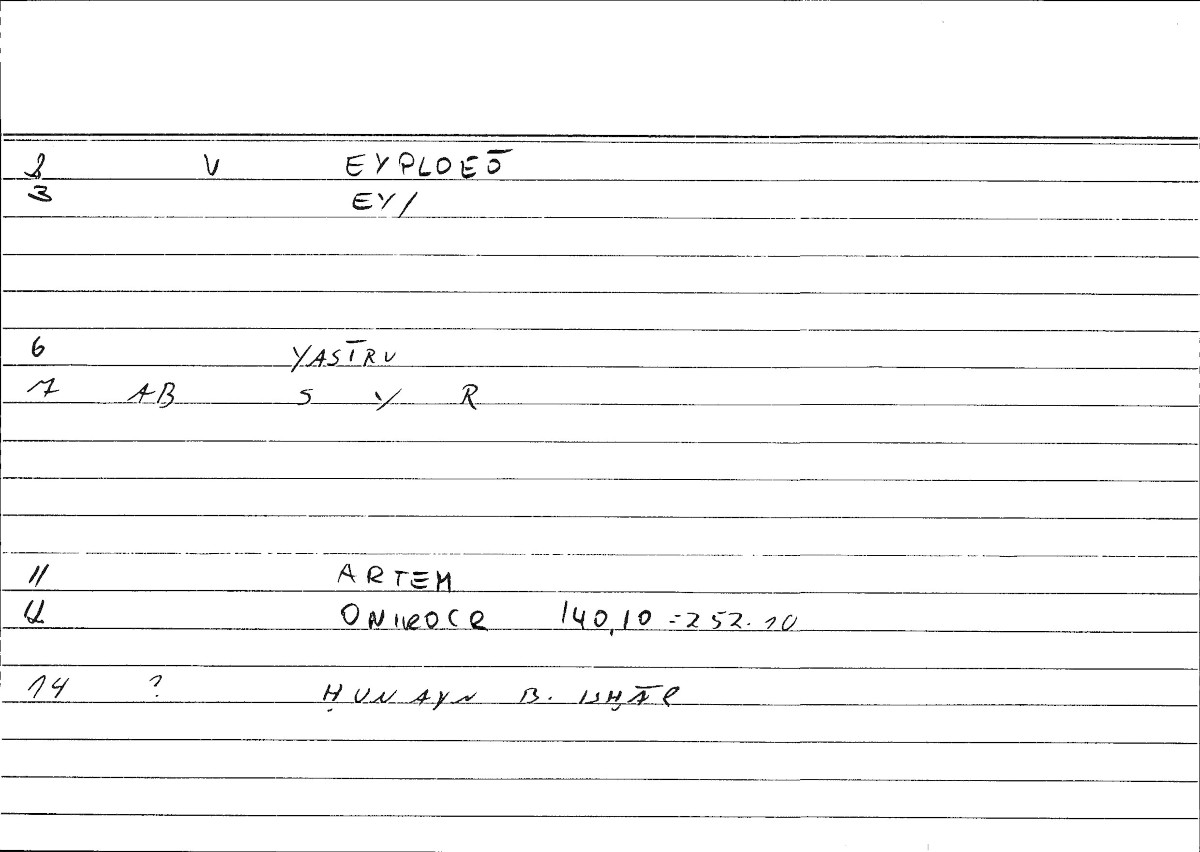 2 V EYPLOEŌ
3 EY/
6 YASĪRU
7 AB S Y R
11 ARTEM
12 ONIROCR 140,10 = 252.10
14 ? ḤUNAYN B. ISḤĀQ